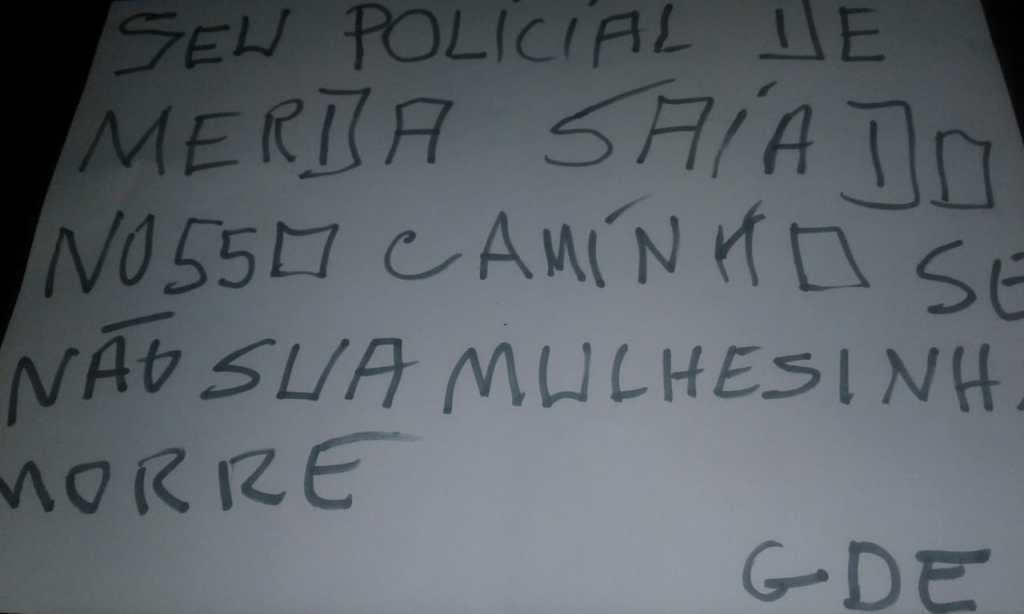 SEU POLICIAL DE
MERDA SAÍA DO
NOSSO CAMÍNHO SE
NÃO SUA MULHESINHA
MORRE
GDE